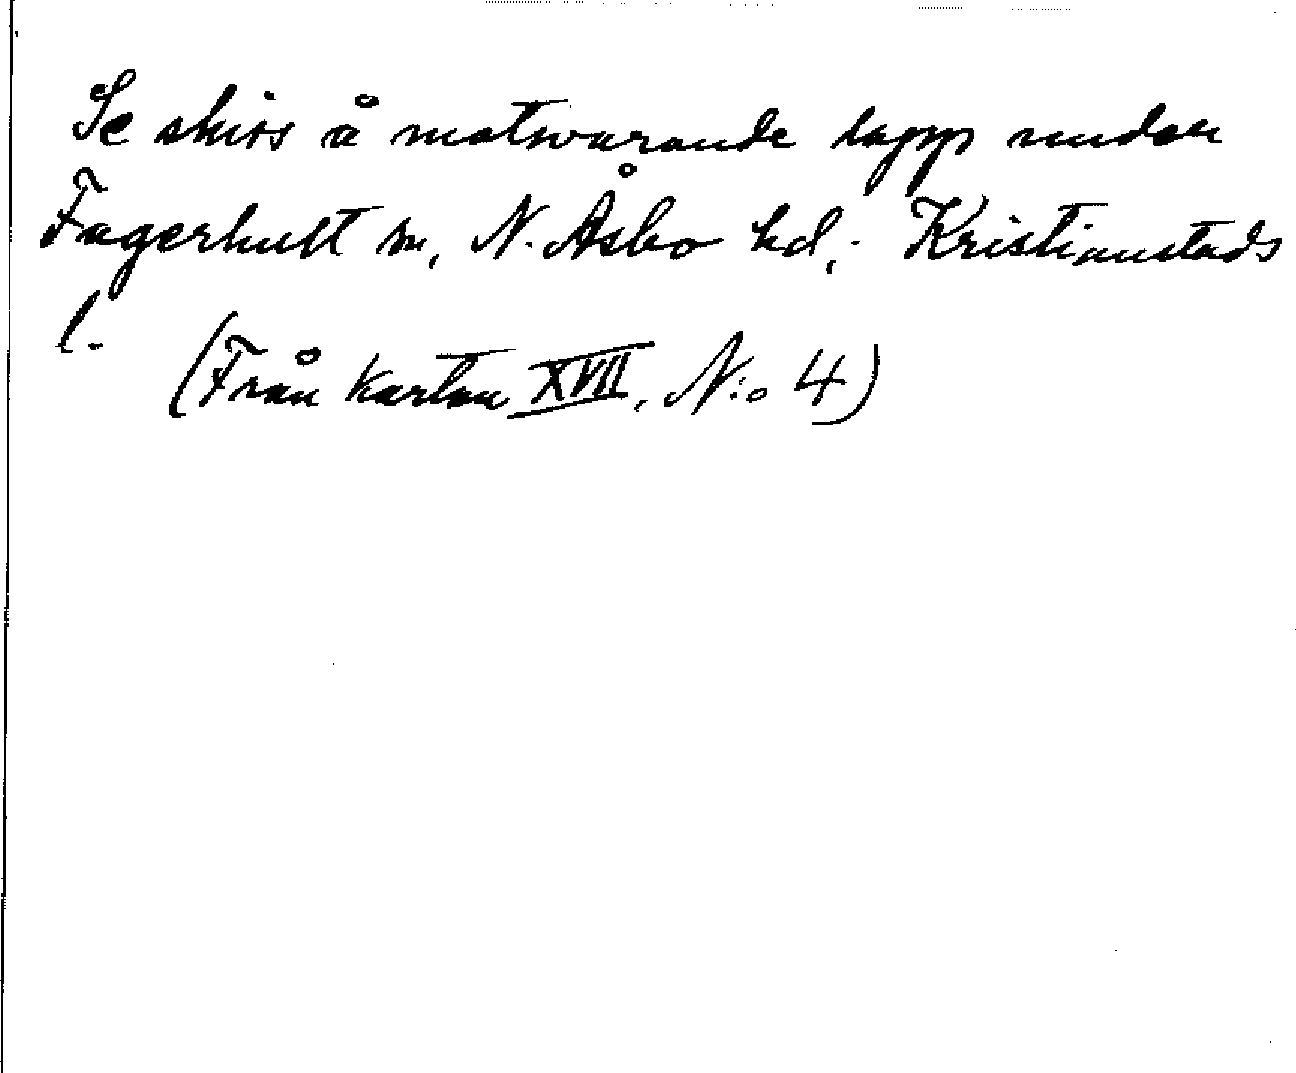 Se skiss å motsvarande lapp under
Fagerhult sn, N. Åsbo hd, Kristianstads
l.
(Från karton XVII, N:o 4)